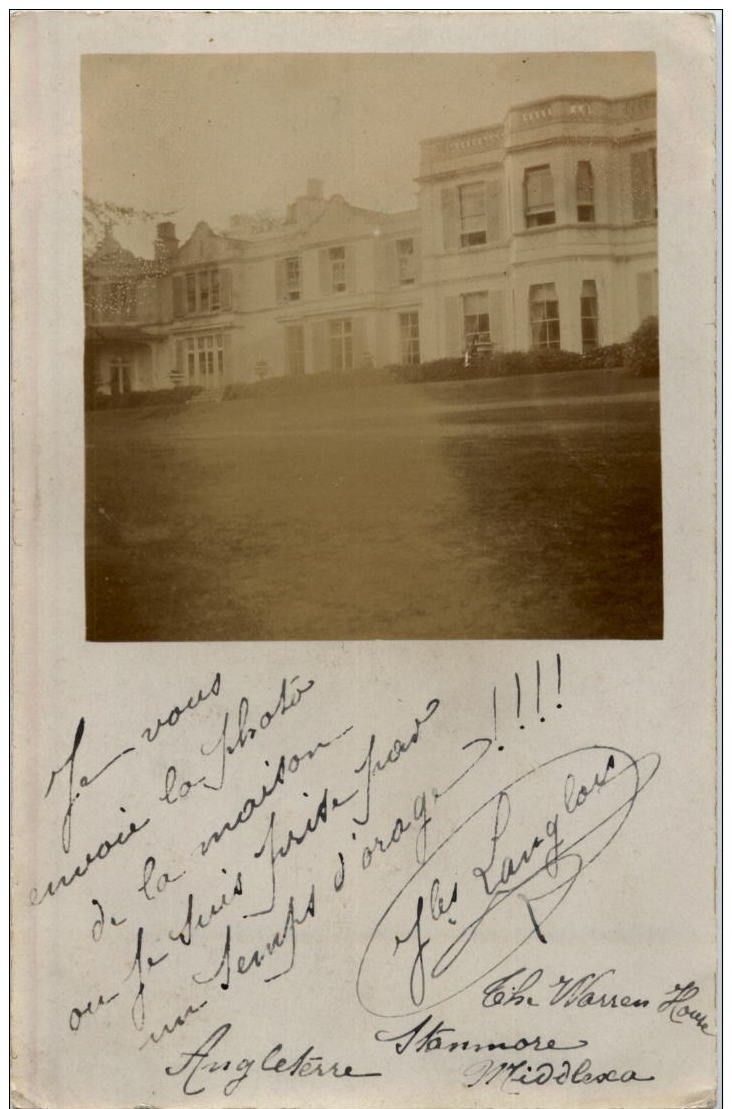 Je vous
envoie la photo
de la maison
ou je suis prise par
un temps d'orage !!!!
Jles Langlois
The Warren House
Stanmore
Middlexa
Angletérre